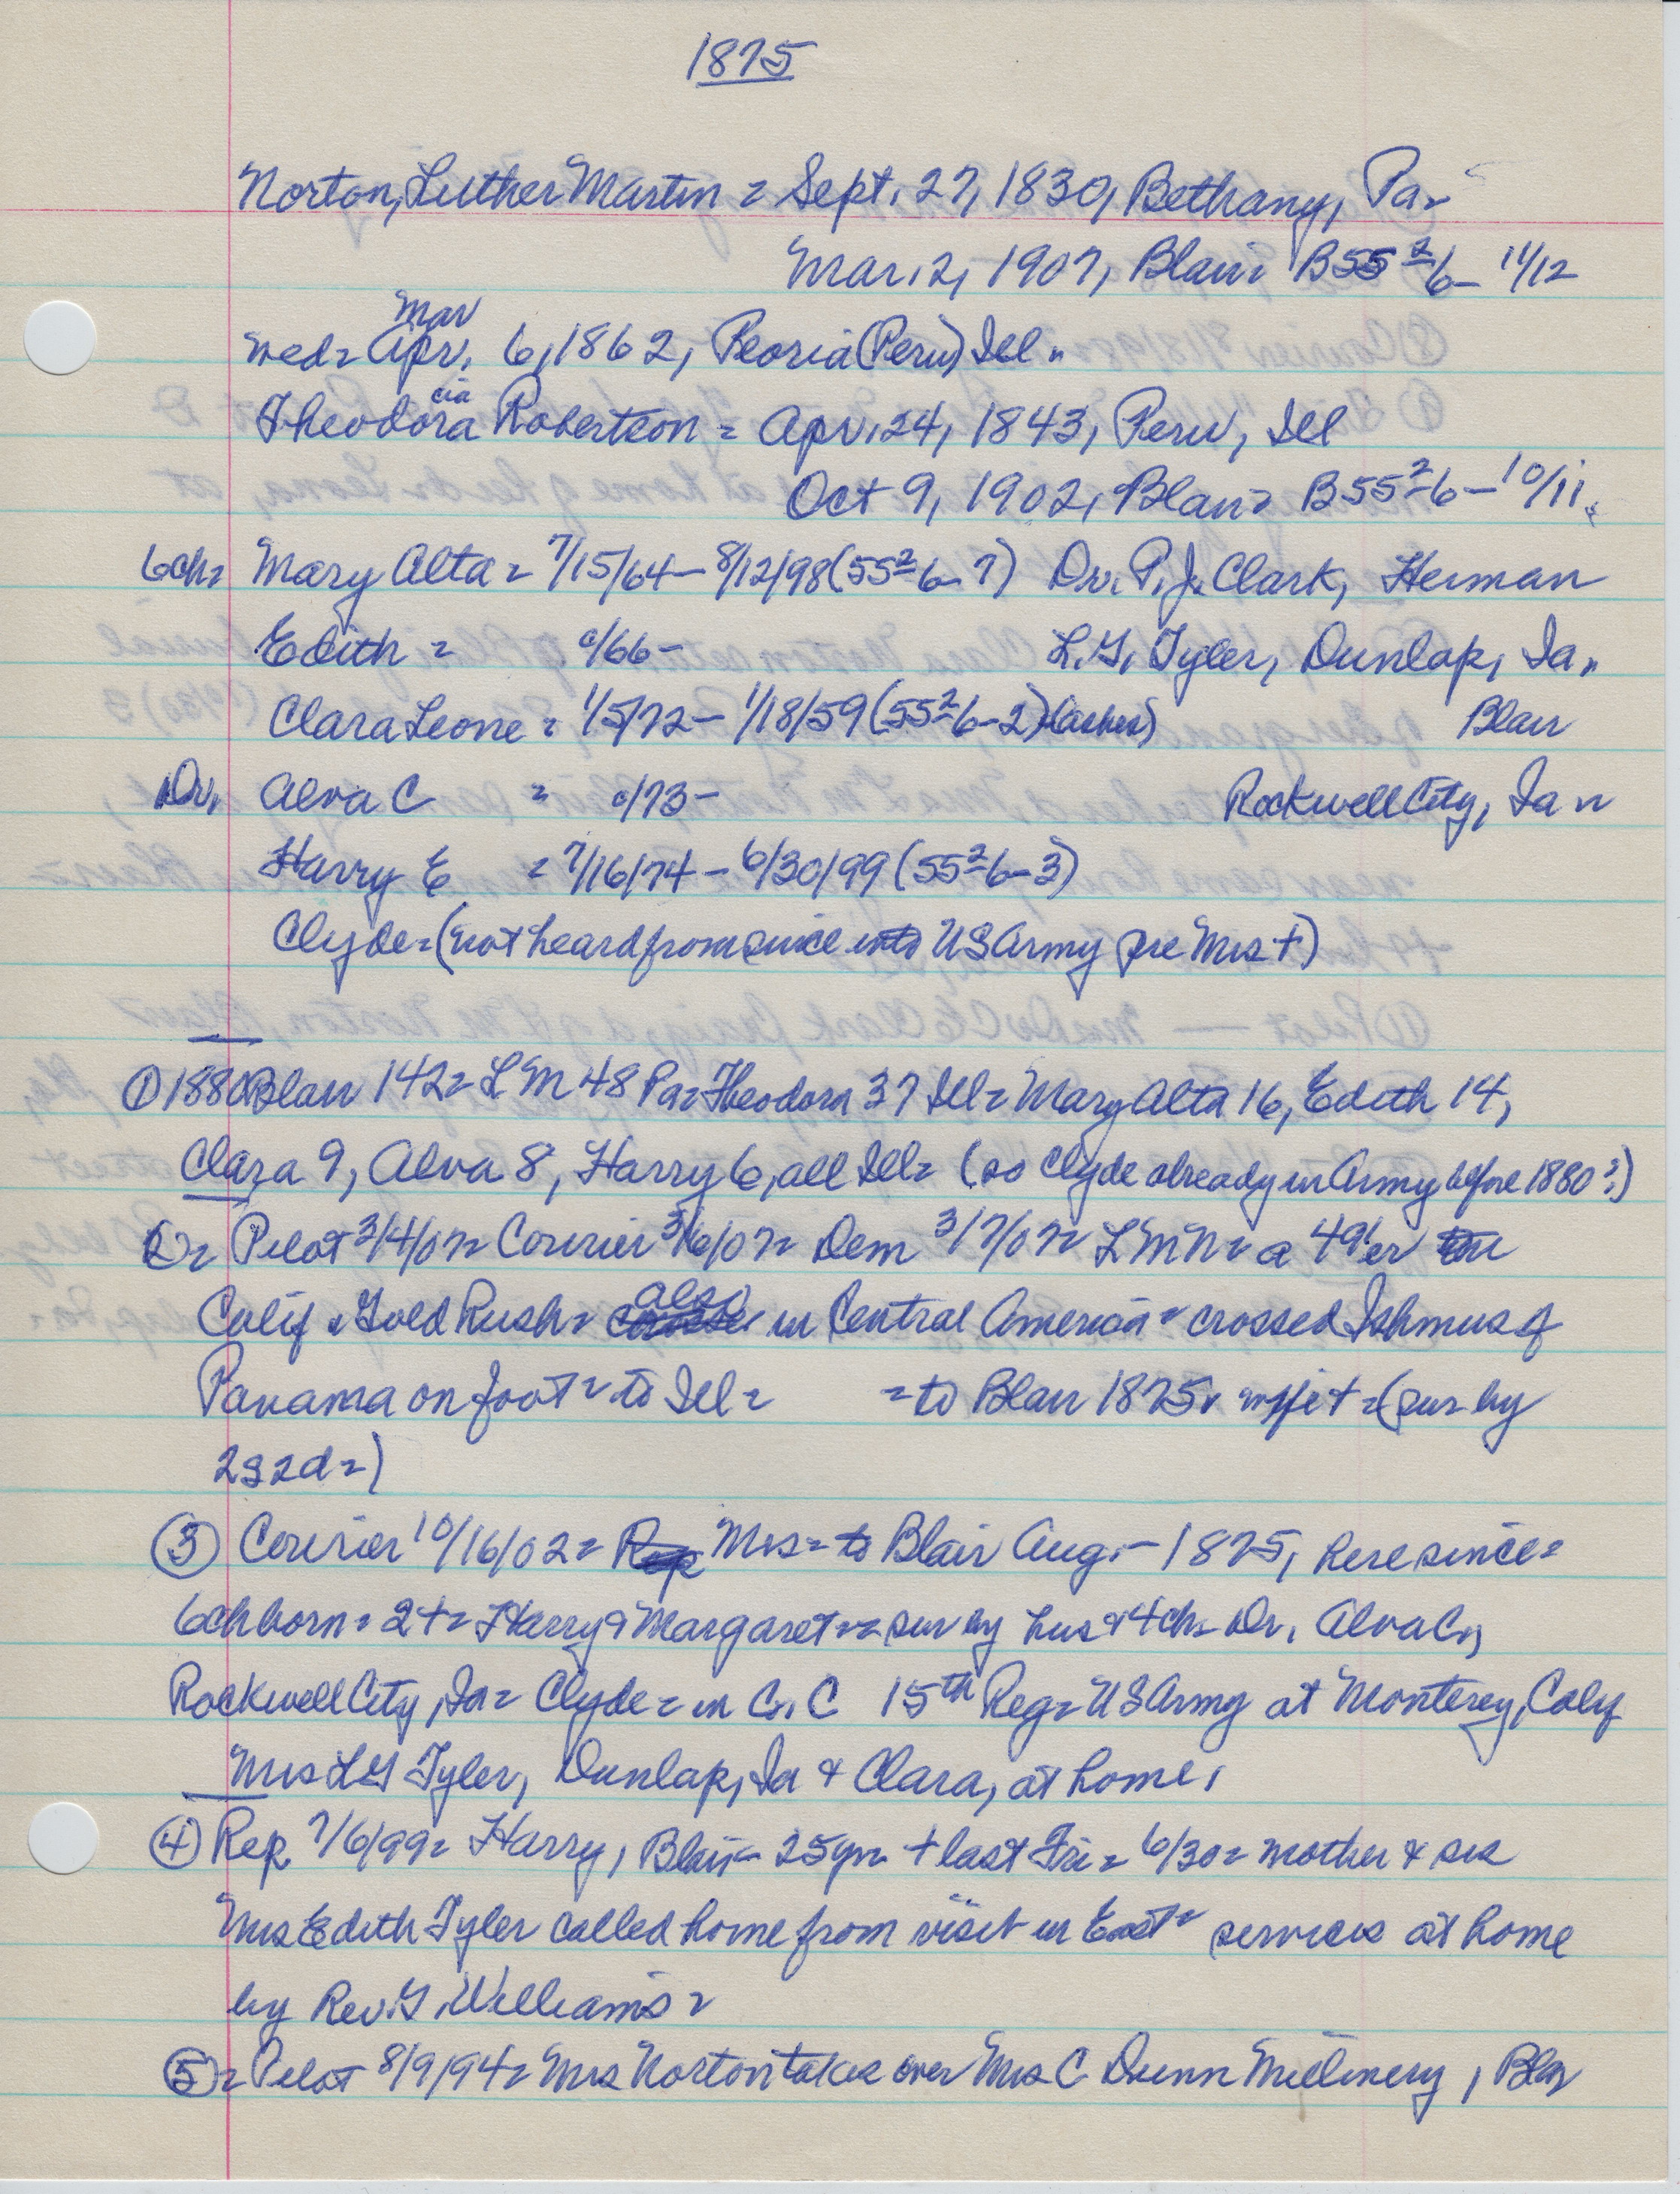 1875
Norton, Luther Martin = Sept. 27, 1830, Bethany, Pa=
Mar. 2, 1907, Blair= B55 2/6- 11/12
Mar
wed= Apr. 6, 1862, Peoria (Peru) Ill=
cia
Theodora Robertson = Apr. 24, 1843, Peru, Ill
Oct 9, 1902, Blair= B55 2/6 - 10/11
6ch= Mary Alta = 7/15/64 - 8/12/98 (55 2/6 - 7) Dr. P. J. Clark, Herman
Edith = c/66 - L. G. Tyler, Dunlap, Ia=
Clara Leone = 1/5/72 - 1/18/59 (55 2/6 - 2) (ashes) Blair
Dr. Alva C = c/73 - Rockwell City, Ia=
Harry E = 7/16/74 - 6/30/99 (55 2/6 - 3)
Clyde = (not heard from since into US Army pre Mrs +)
① 1880 Blair 142 = L M 48 Pa= Theodora 37 Ill= Mary Alta 16, Edith 14,
Clara 9, Alva 8, Harry 6, all Ill= (so Clyde already in Army before 1880?)
2= Pilot 3/4/07= Courier 3/6/07= Dem 3/7/07= L M N= a 49'er
Calif. Gold Rush= also in Central America= crossed Ishmus of
Panama on foot= to Ill= = to Blair 1875= wife + = (sur by
2s 2d=)
③ Courier 10/16/02= Mrs= to Blair Aug. - 1875, here since=
6ch born= 2+= Harry & Margaret+= sur by hus & 4ch= Dr. Alva C,
Rockwell City, Ia= Clyde= in Co. C 15th Reg= US Army at Monterey, Calif
Mrs L G Tyler, Dunlap, Ia & Clara, at home,
④ Rep 7/6/99= Harry, Blair= 25yr= + last Fri= 6/30= mother & sis
Mrs Edith Tyler called home from visit in East= services at home
by Rev. G. Williams=
⑤= Pilot 8/9/94= Mrs Norton takes over Mrs C Dunn Millinery, Blair